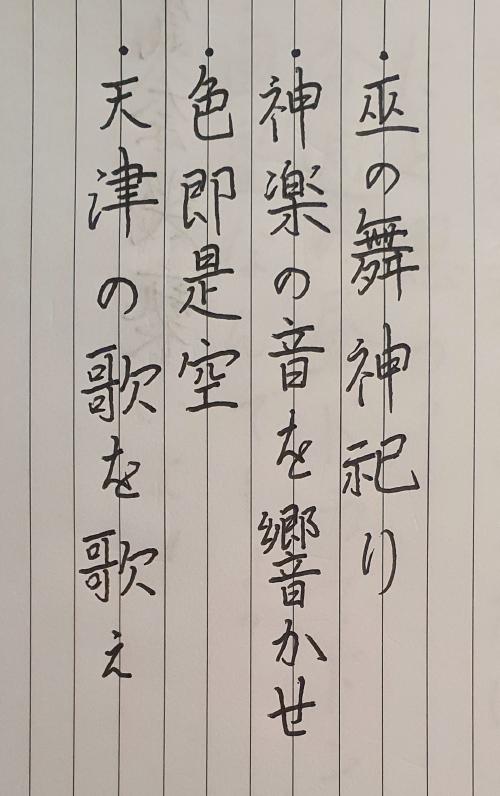 ・巫の舞神祀り
・神楽の音を響かせ
・色即是空
・天津の歌を歌え